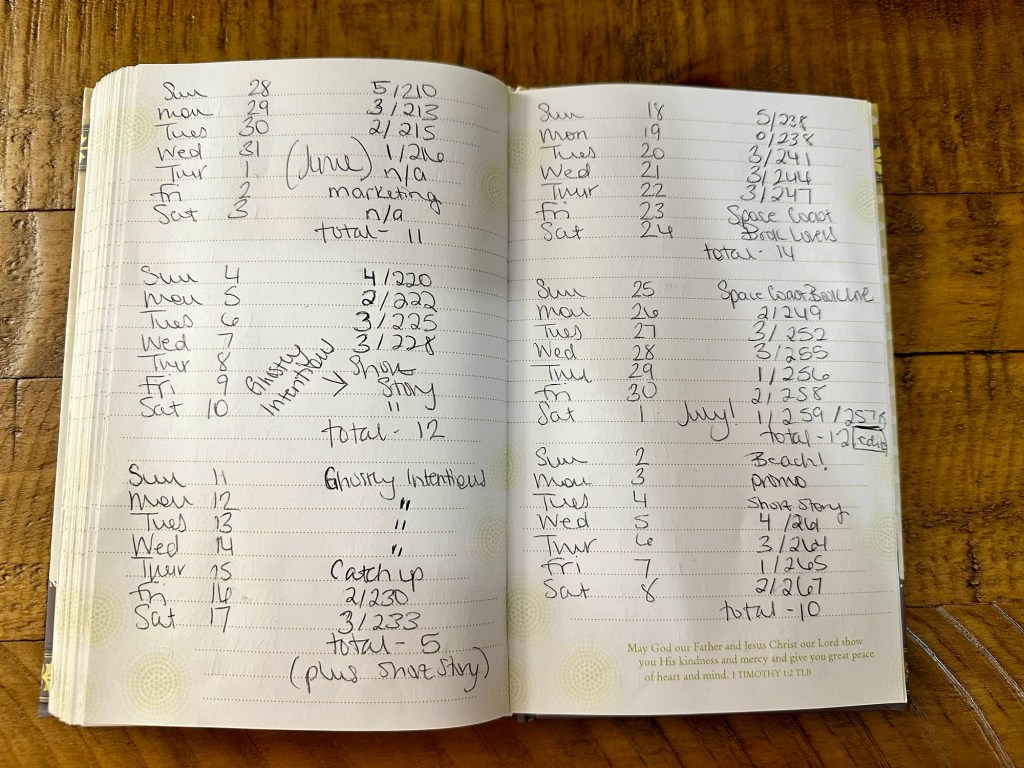 Sun 28 5/210
Mon 29 3/213
Tues 30 2/215
Wed 31 1/216
Thur 1 (June) n/a
Fri 2 marketing
Sat 3 n/a
total - 11
Sun 4 4/220
Mon 5 2/222
Tues 6 3/225
Wed 7 3/228
Thur 8 Ghostly Intentions → Short
Fri 9 Story
Sat 10 "
total - 12
Sun 11 Ghostly Intentions
Mon 12 "
Tues 13 "
Wed 14 "
Thur 15 Catch up
Fri 16 2/230
Sat 17 3/233
total - 5
(plus short story)
Sun 18 5/238
Mon 19 0/238
Tues 20 3/241
Wed 21 3/244
Thur 22 3/247
Fri 23 Space Coast
Sat 24 Book Lovers
total - 14
Sun 25 Space Coast Book
Mon 26 2/249
Tues 27 3/252
Wed 28 3/255
Thu 29 1/256
Fri 30 2/258
Sat 1 July! 1/259
total - 12
Sun 2 Beach!
Mon 3 promo
Tues 4 Short Story
Wed 5 4/261
Thur 6 3/264
Fri 7 1/265
Sat 8 2/267
total - 10
May God our Father and Jesus Christ our Lord show
you His kindness and mercy and give you great peace
of heart and mind. 1 TIMOTHY 1:2 TLB